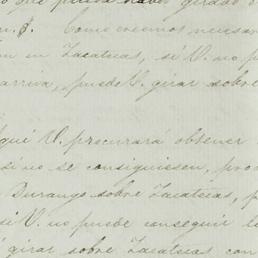 que pueda haber girado
n $. Como creemos necesar
en en Zacatecas, si V. no p
arriva, puede V. girar sobre
qui V. procurará obtener
si no se consiguiesen, pro
Durango sobre Zacatecas, p
si V. no puede conseguir l
girar sobre Zacatecas con